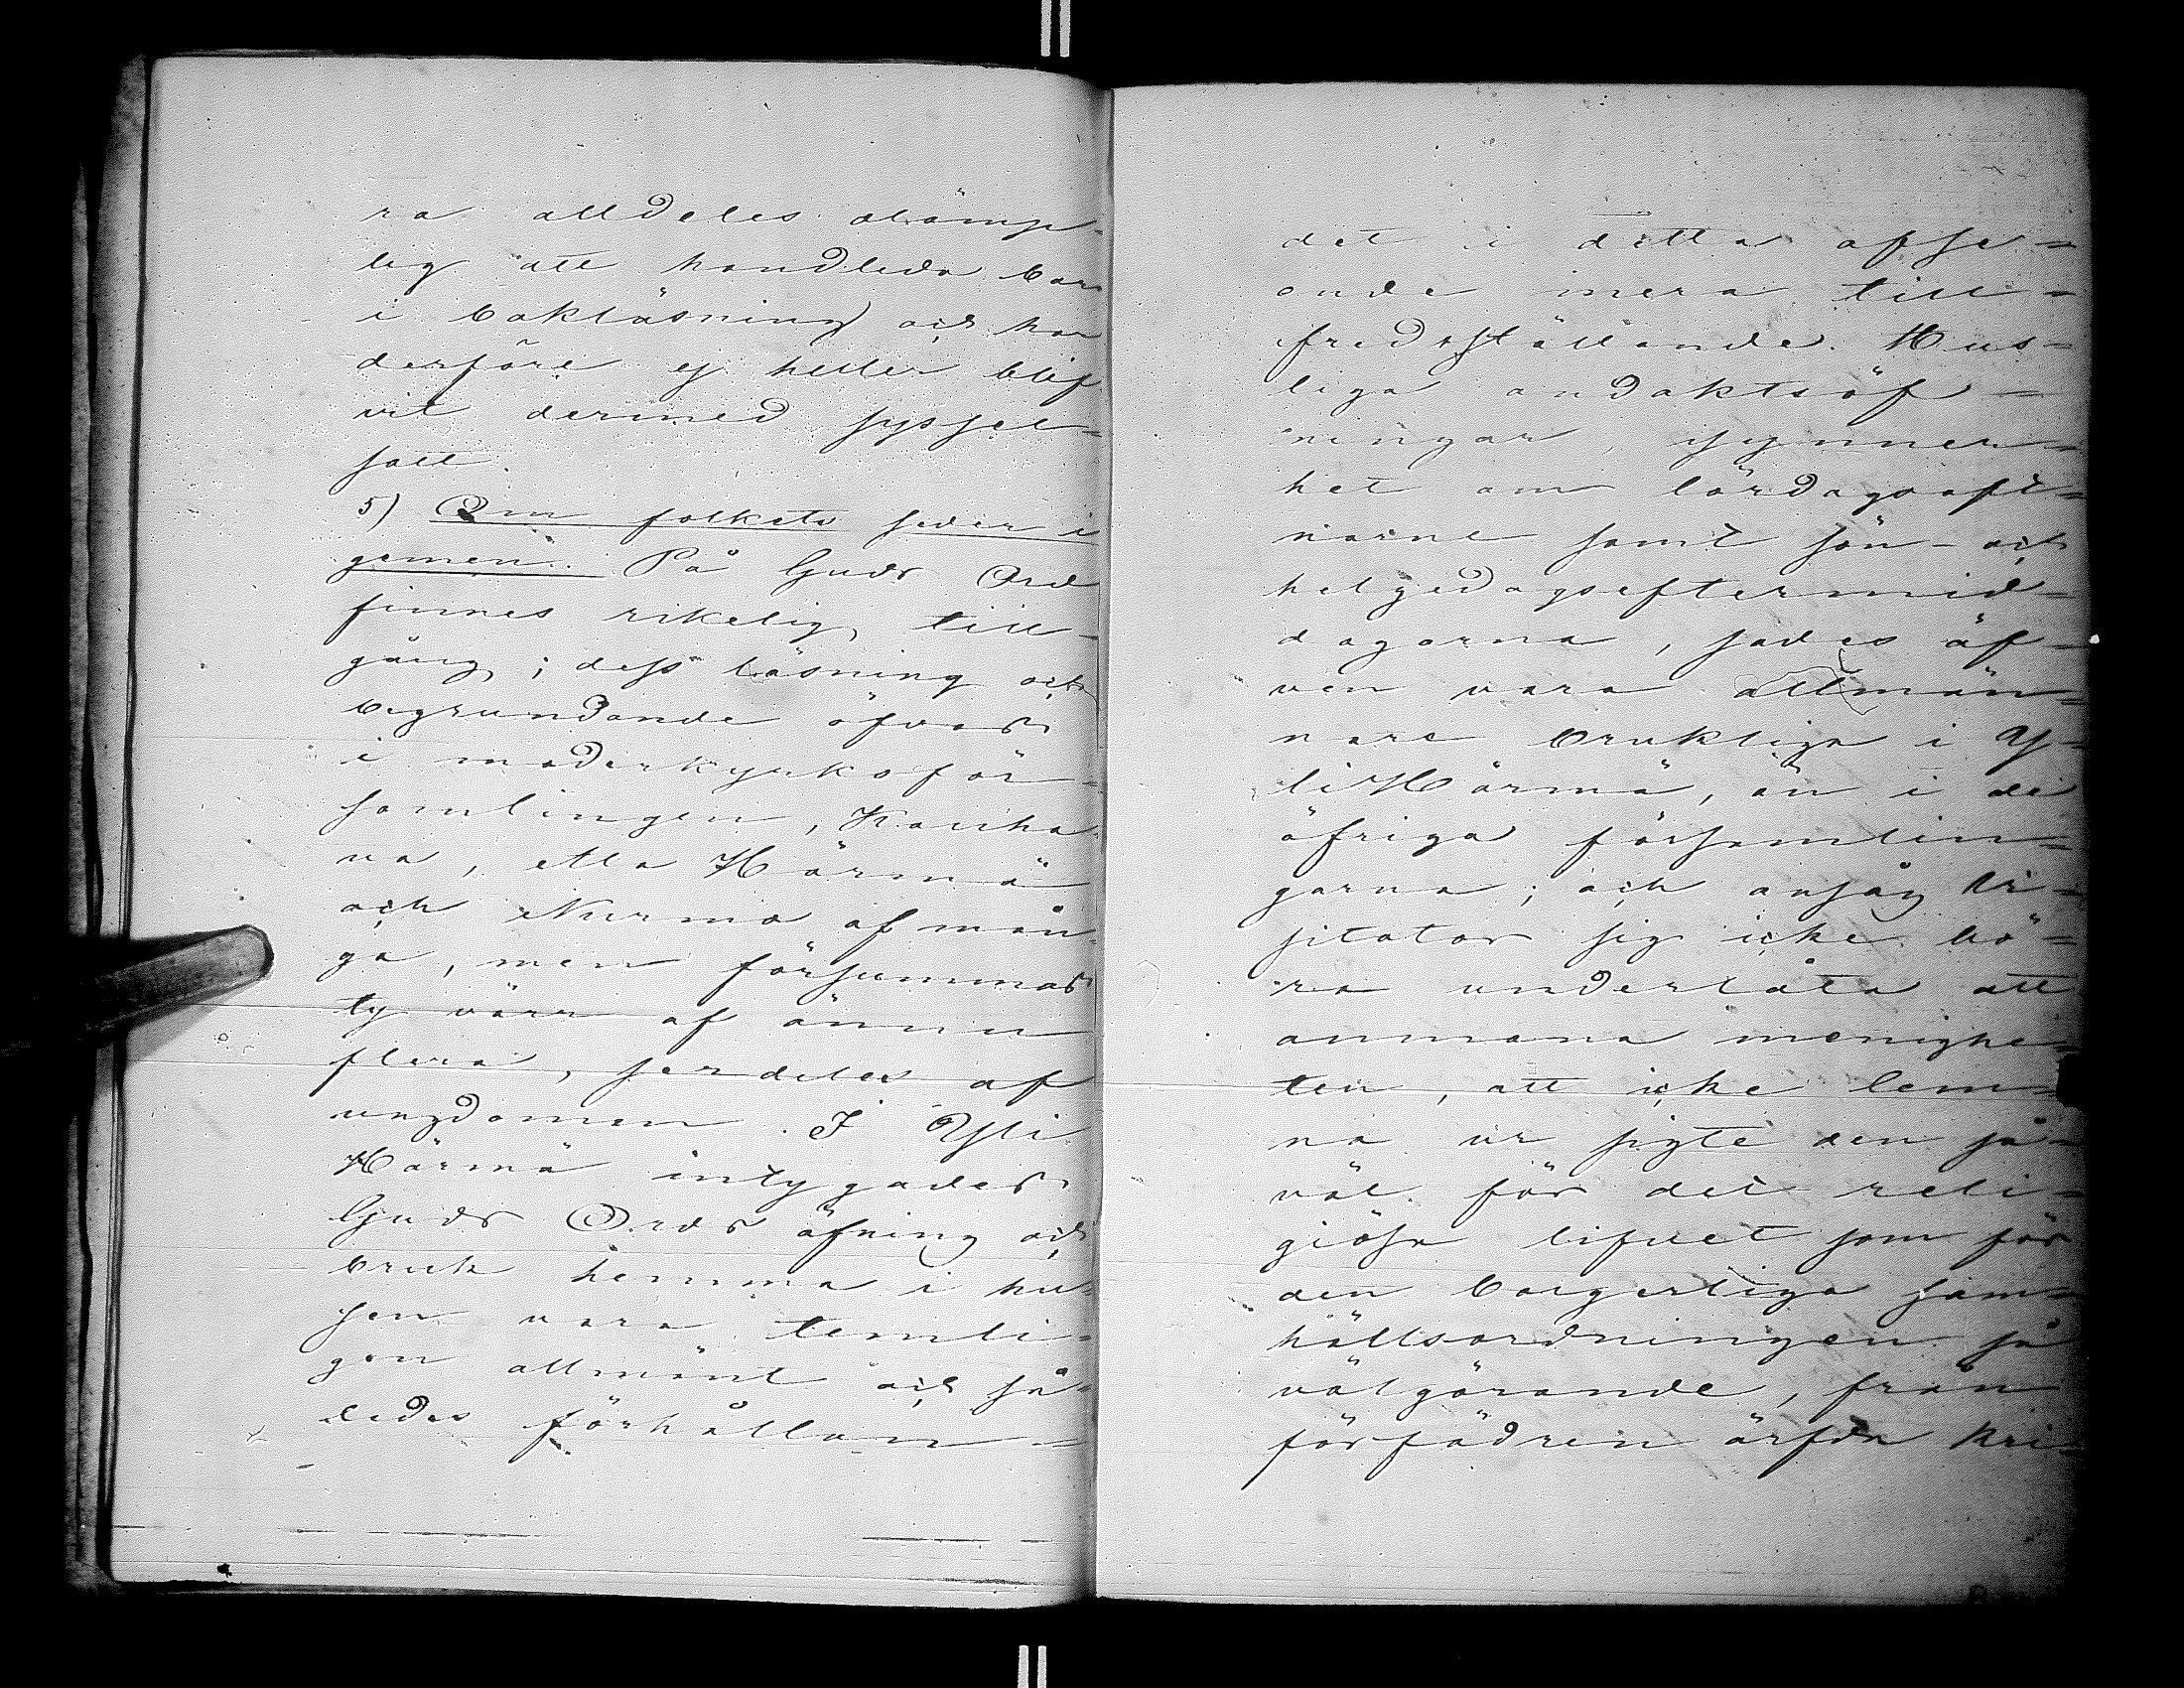 ra alldeles olämp-
lig att handleda barn
i bokläsning och har
derföre ej heller blif-
vit dermed syssel-
satt.
5) Om folkets seder i
gemen. På Guds Ord
finnes rikelig till-
gång; dess läsning och
begrundande öfvas
i moderkyrkoför-
samlingen, Kauha-
va, Ala Härmä
och Nurmo af mån-
ga, men försummas
ty värr af ännu
flera, serdeles af
ungdomen. I Yli
Härmä intygades
Guds Ords öfning och
bruk hemma i hu-
sen vara temli-
gen allmänt och så-
ledes förhållan-
det i detta afse-
ende mera till-
fredsställande. Hus-
liga andaktsöf-
ningar, synner-
het om lördagsaft-
narne samt sön- och
helgedagseftermid-
dagarna, sades äf-
ven vara allmän-
nare brukliga i Y-
li Härmä, än i de
öfriga församlin-
garna; och ansåg Vi-
sitator sig icke bö-
ra underlåta att
anmana menighe-
ten, att icke lem-
na ur sigte den så-
väl för det reli-
giösa lifvet som för
den borgerliga sam-
hällsordningen så
välgörande, från
förfädren ärfda kri-